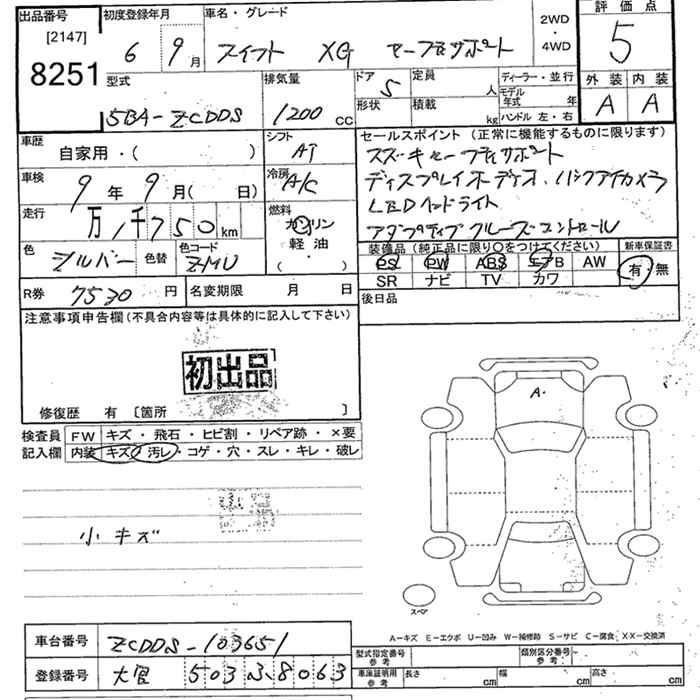 出品番号 [2147] 8251
初度登録年月 6 9月
車名・グレード スイフト XG セーフティサポート
2WD・4WD
評価点 5
外装 A 内装 A
型式 5BA-ZCDDS
排気量 1200 CC
ドア 5 形状
定員 人
積載 kg
ディーラー・並行
モデル年式 年
ハンドル 左・右
車歴 自家用・( )
シフト AT
車検 9年 9月( 日)
冷房 A/C
走行 万1千750km
燃料 ガソリン 軽油 ・( )
色 シルバー 色替 色コード ZMU
R券 7530円 名変期限 月 日
セールスポイント (正常に機能するものに限ります)
スズキセーフティサポート
ディスプレイオーディオ、バックアイカメラ
LEDヘッドライト
アダプティブクルーズコントロール
装備品 (純正品に限り〇をつけてください) 新車保証書
PS PW ABS エアB AW 有・無
SR ナビ TV カワ
後日品
注意事項申告欄 (不具合内容等は具体的に記入して下さい)
初出品
修復歴 有 〔箇所 〕
検査員記入欄 FW キズ・飛石・ヒビ割・リペア跡・×要
内装 キズ・汚レ・コゲ・穴・スレ・キレ・破レ
小キズ
A・
スペア
A-キズ E-エクボ U-凹み W-補修跡 S-サビ C-腐食 X・XX-交換済
車台番号 ZCDDS-103651
登録番号 大宮 503 ふ 8063
型式指定番号 参考 類別区分番号 参考
車庫証明用 参考 長さ cm 幅 cm 高さ cm